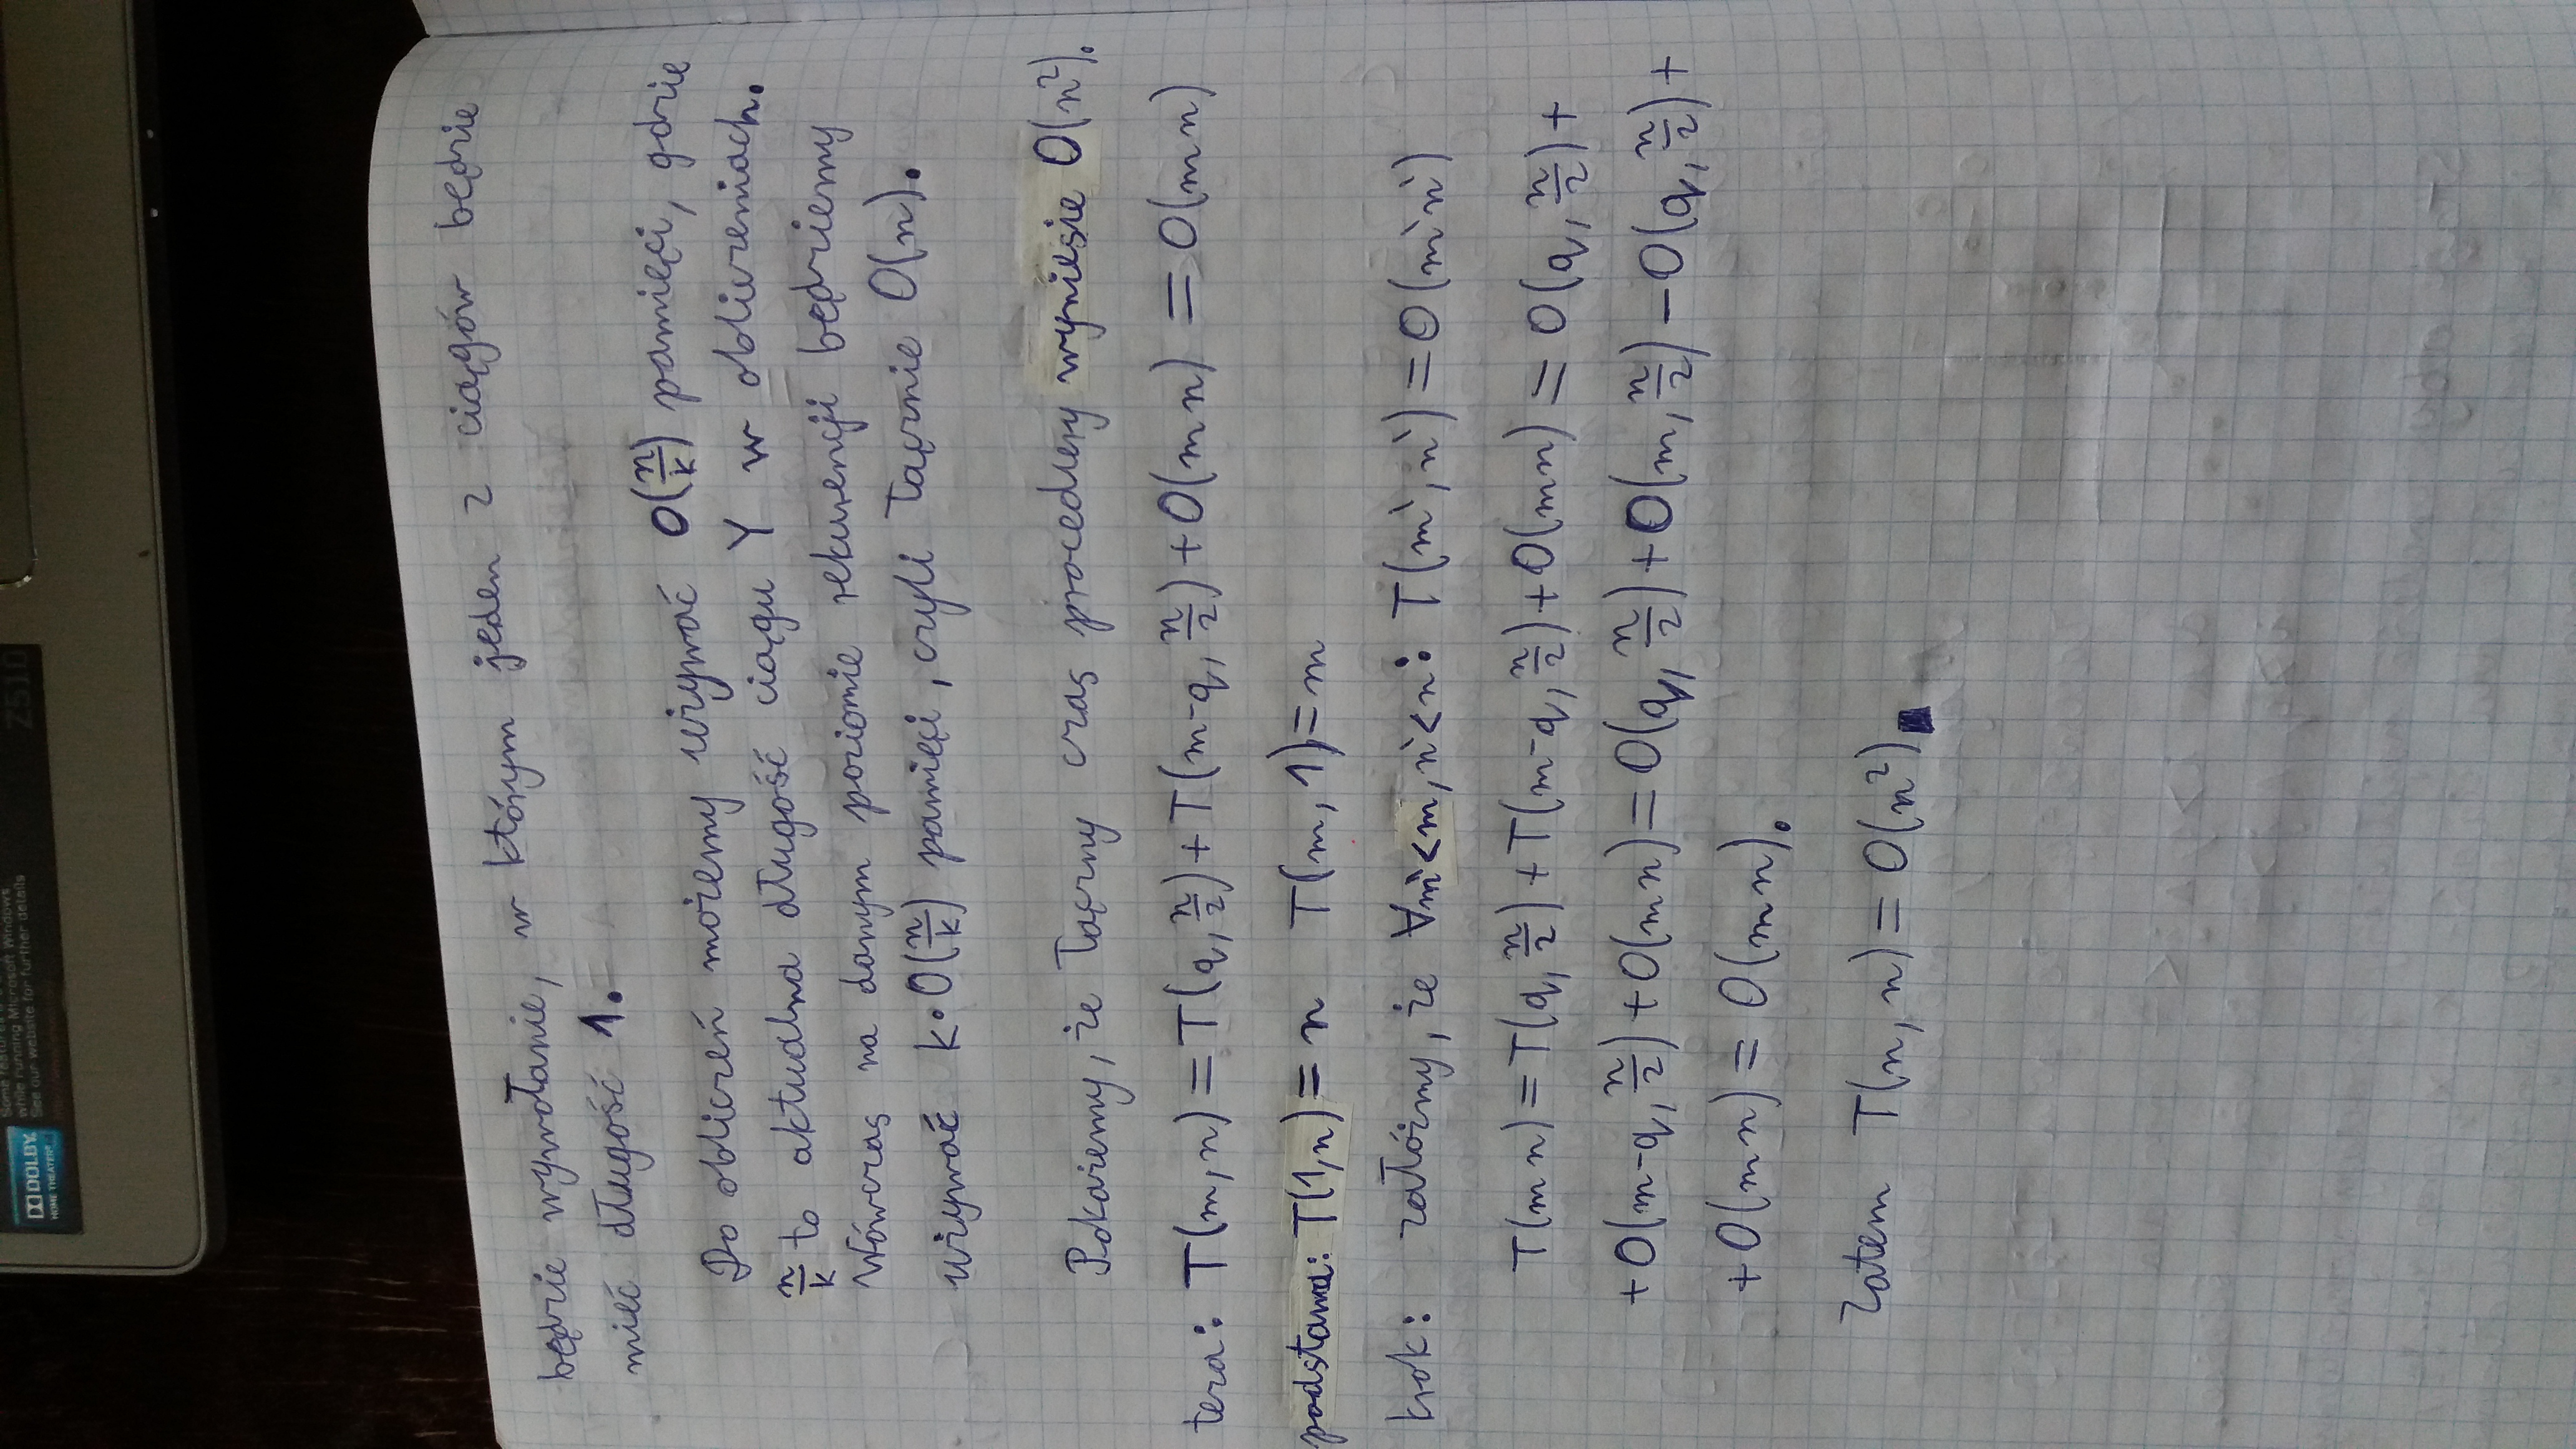 Some features
while running Microsoft Windows
See our website for further details
DOLBY
HOME THEATER
Z510
będzie wywołanie, w którym jeden z ciągów będzie
mieć długość 1.
Do obliczeń możemy używać O(n/k) pamięci, gdzie
n/k to aktualna długość ciągu Y w obliczeniach.
Wówczas na danym poziomie rekurencji będziemy
używać k·O(n/k) pamięci, czyli łącznie O(n).
Pokażemy, że łączny czas procedury wyniesie O(n²).
teza: T(m,n)=T(q,n/2)+T(m-q,n/2)+O(mn) = O(mn)
podstawa: T(1,n)= n T(m,1)=m
krok: załóżmy, że ∀m`<m, n`<n: T(m`,n`)=O(m`n`)
T(mn)=T(q,n/2)+T(m-q,n/2)+O(mn) = O(q,n/2)+
+O(m-q,n/2)+O(mn)=O(q,n/2)+O(m,n/2)-O(q,n/2)+
+O(mn)= O(mn).
Zatem T(n,n)=O(n²)■